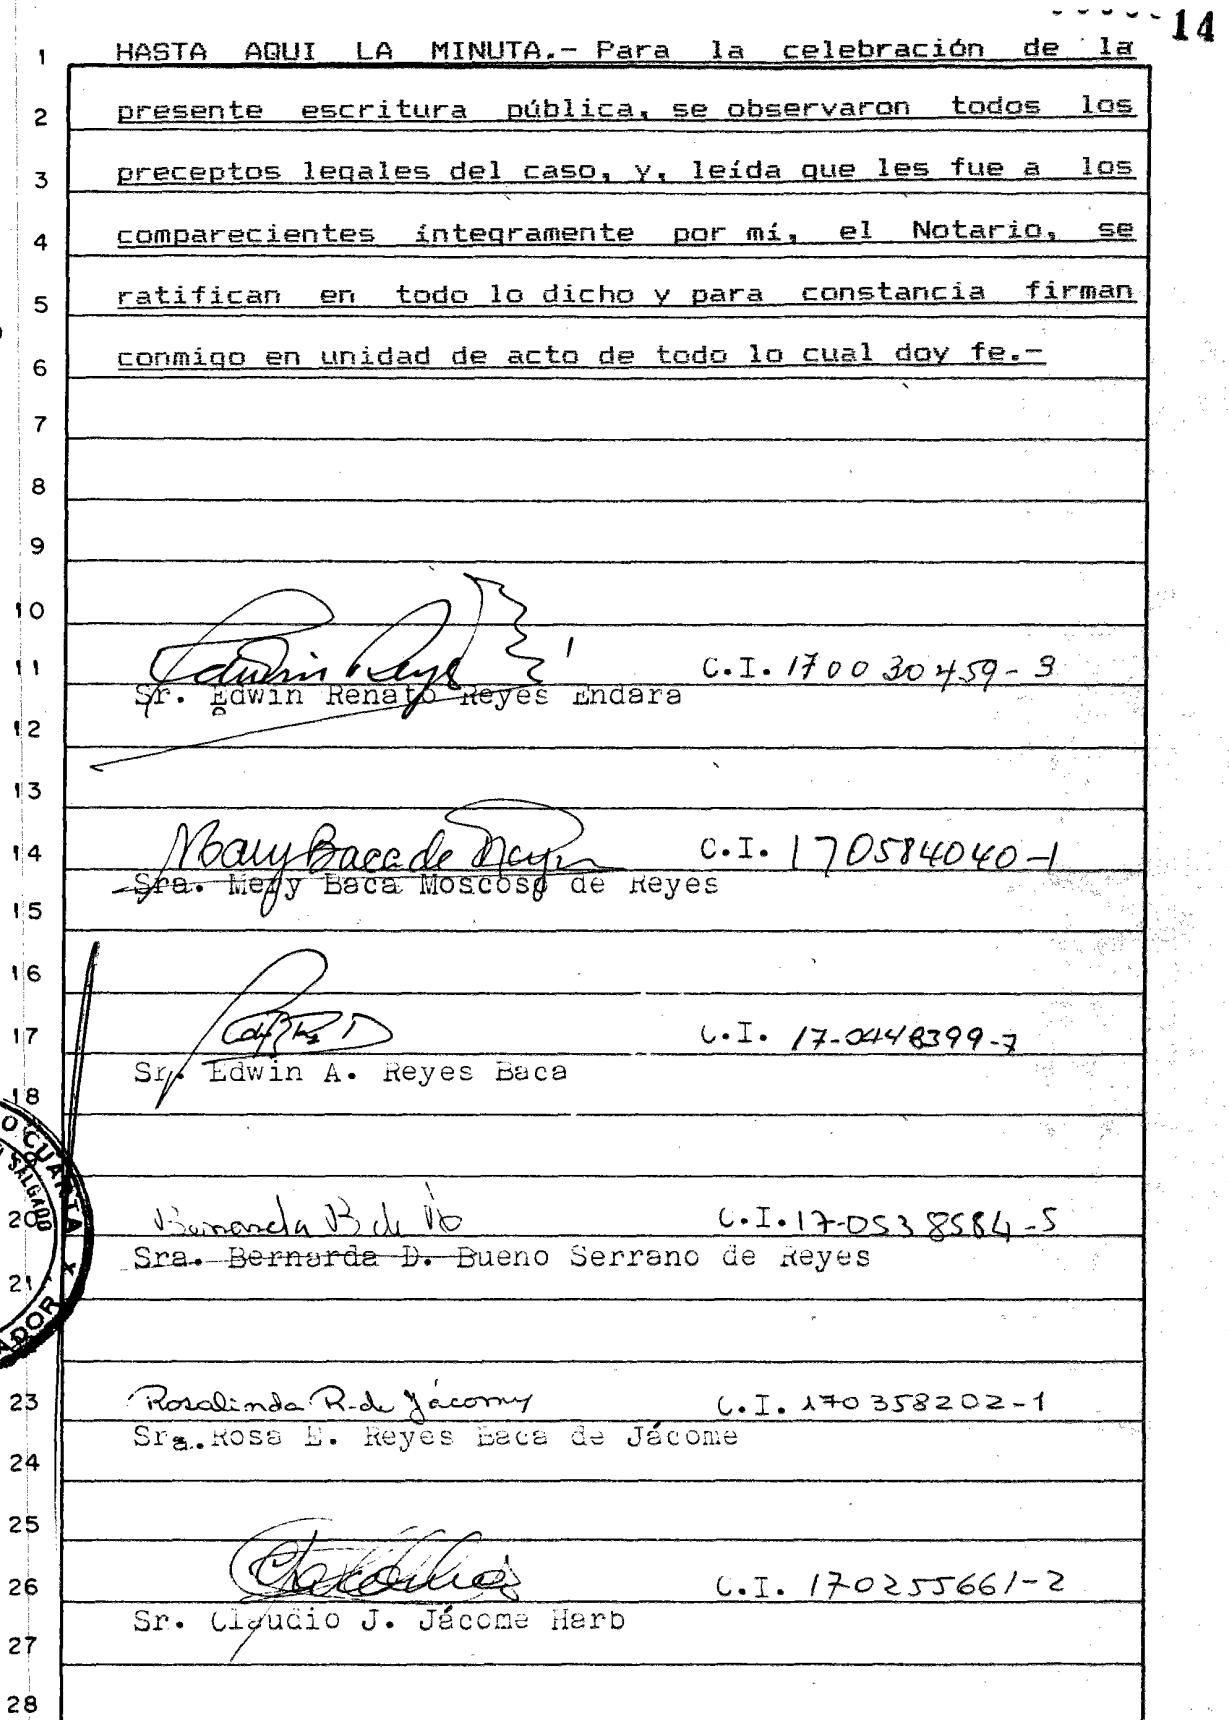 14
1 HASTA AQUI LA MINUTA.- Para la celebración de la
2 presente escritura pública, se observaron todos los
3 preceptos legales del caso, y, leída que les fue a los
4 comparecientes íntegramente por mí, el Notario, se
5 ratifican en todo lo dicho y para constancia firman
6 conmigo en unidad de acto de todo lo cual doy fe.-
7
8
9
10
11 Edwin Reyes C.I. 170030459-3
Sr. Edwin Renato Reyes Endara
12
13
14 Mary Baca de Reyes C.I. 170584040-1
Sra. Mery Baca Moscoso de Reyes
15
16
17 C.I. 17-0448399-7
Sr. Edwin A. Reyes Baca
18
O CUARTA x
SALGADO
ADOR
20 Bernarda B de C.I. 17-0538584-5
Sra. Bernarda D. Bueno Serrano de Reyes
21
23 Rosalinda R. de Jácome C.I. 170358202-1
Sra. Rosa E. Reyes Baca de Jácome
24
25
26 C.I. 170255661-2
Sr. Claudio J. Jácome Harb
27
28